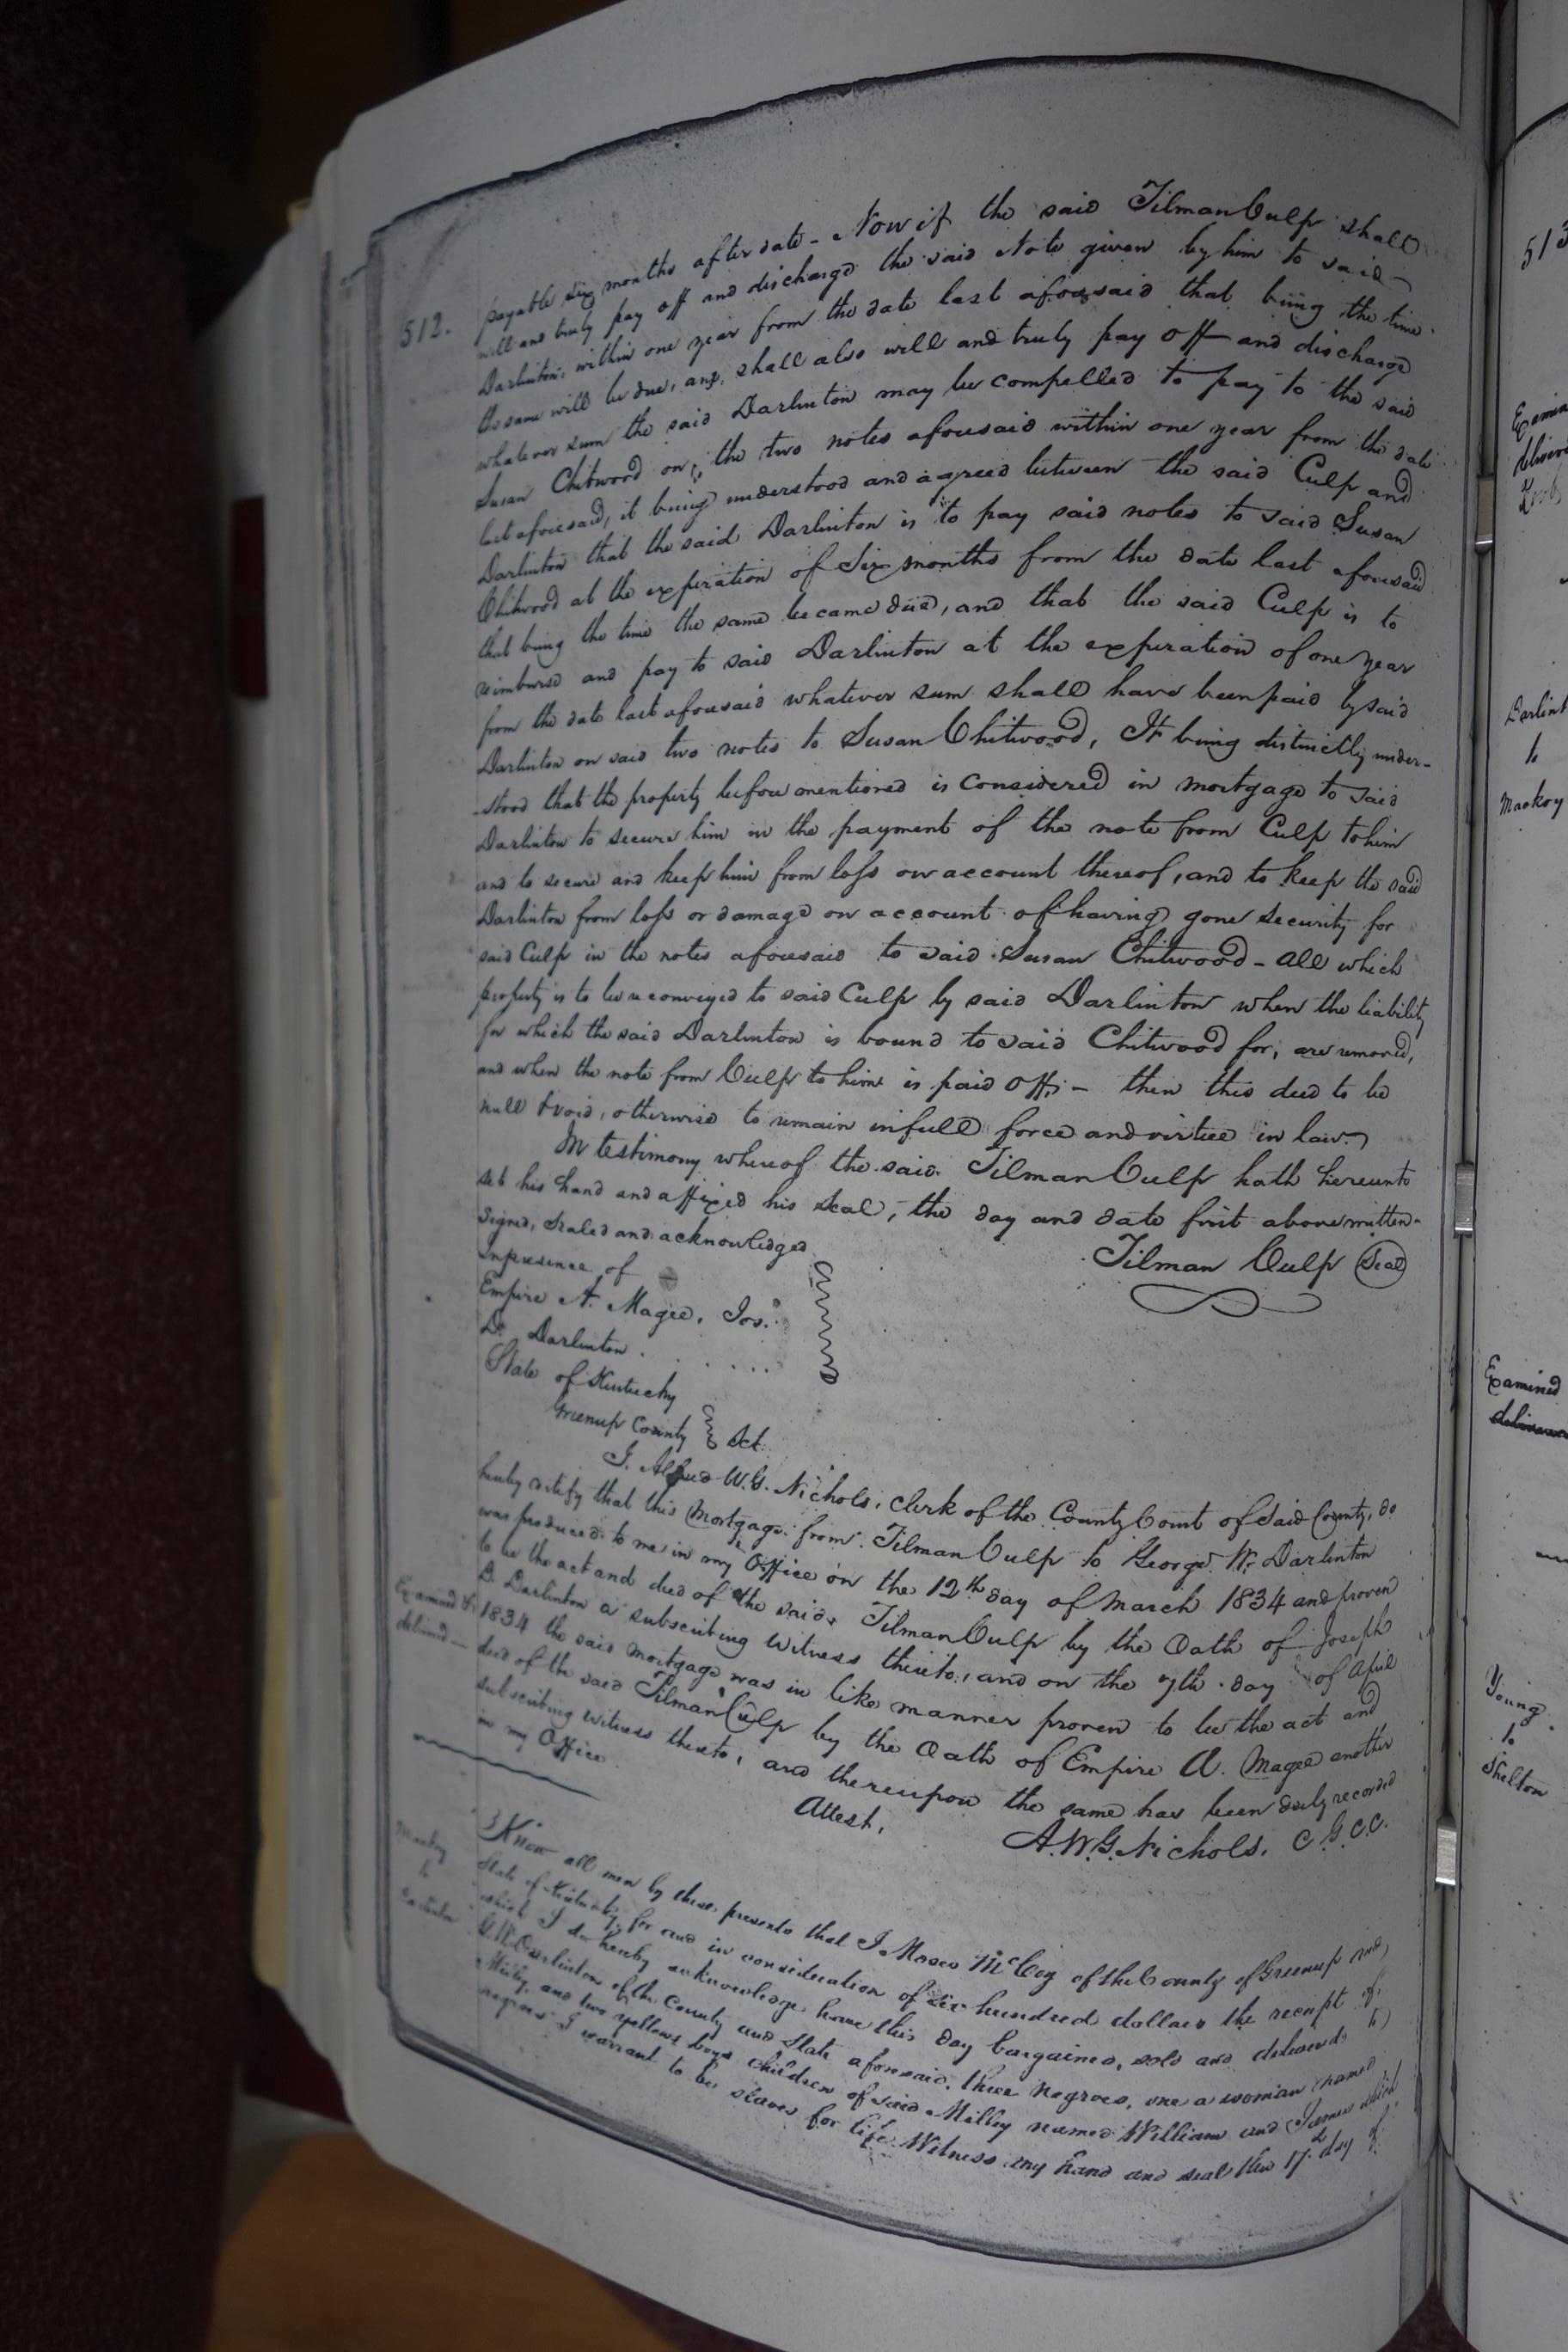 512.
payable six months after date - Now if the said Tilman Culp shall
well and truly pay off and discharge the said Note given by him to said
Darlinton, within one year from the date last aforesaid that being the time
the same will be due, and shall also well and truly pay off and discharge
whatever sum the said Darlinton may be compelled to pay to the said
Susan Chitwood on the two notes aforesaid within one year from the date
last aforesaid, it being understood and agreed between the said Culp and
Darlinton that the said Darlinton is to pay said notes to said Susan
Chitwood at the expiration of Six months from the date last aforesaid
that being the time the same became due, and that the said Culp is to
reimburse and pay to said Darlinton at the expiration of one year
from the date last aforesaid whatever sum shall have been paid by said
Darlinton on said two notes to Susan Chitwood, It being distinctly under-
-stood that the property before mentioned is considered in mortgage to said
Darlinton to secure him in the payment of the note from Culp to him
and to secure and keep him from loss on account thereof, and to keep the said
Darlinton from loss or damage on account of having gone security for
said Culp in the notes aforesaid to said Susan Chitwood - all which
property is to be reconveyed to said Culp by said Darlinton when the liability
for which the said Darlinton is bound to said Chitwood for, are removed,
and when the note from Culp to him is paid off, - then this deed to be
null & void, otherwise to remain in full force and virtue in law.
In testimony whereof the said Tilman Culp hath hereunto
set his hand and affixed his seal, the day and date first above written.
Signed, Sealed and acknowledged
In presence of
Tilman Culp Seal
Empire A. Magee, Jos.
D. Darlinton
State of Kentucky
Greenup County Sct.
I, Alfred W. G. Nichols, clerk of the County Court of Said County, do
hereby certify that this Mortgage from Tilman Culp to George W. Darlinton
was produced to me in my Office on the 12th day of March 1834 and proven
to be the act and deed of the said Tilman Culp by the Oath of Joseph
D. Darlinton a subscribing Witness thereto, and on the 7th day of April
Examined &
delivered
1834 the said mortgage was in like manner proven to be the act and
deed of the said Tilman Culp by the Oath of Empire A. Magee another
subscribing Witness thereto, and thereupon the same has been duly recorded
in my Office
Attest, A. W. G. Nichols, C. G. C. C.
Know all men by these presents that I Moses McCoy of the County of Greenup and
State of Kentucky for and in consideration of Six hundred dollars the receipt of
which I do hereby acknowledge have this day bargained, sold and delivered to
G. W. Darlinton of the County and State aforesaid, three negroes, one a woman named
Milly, and two yellow boys children of said Milly named William and James which
negroes I warrant to be slaves for life. Witness my hand and seal this 17th day of
513
Examin
deliver
Darlint
to
Mackoy
Examined
Young
to
Shelton